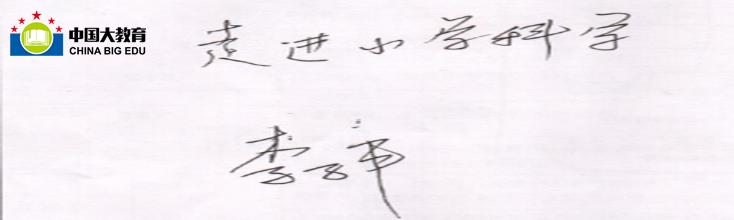 中国大教育
CHINA BIG EDU
走进小学科学
李